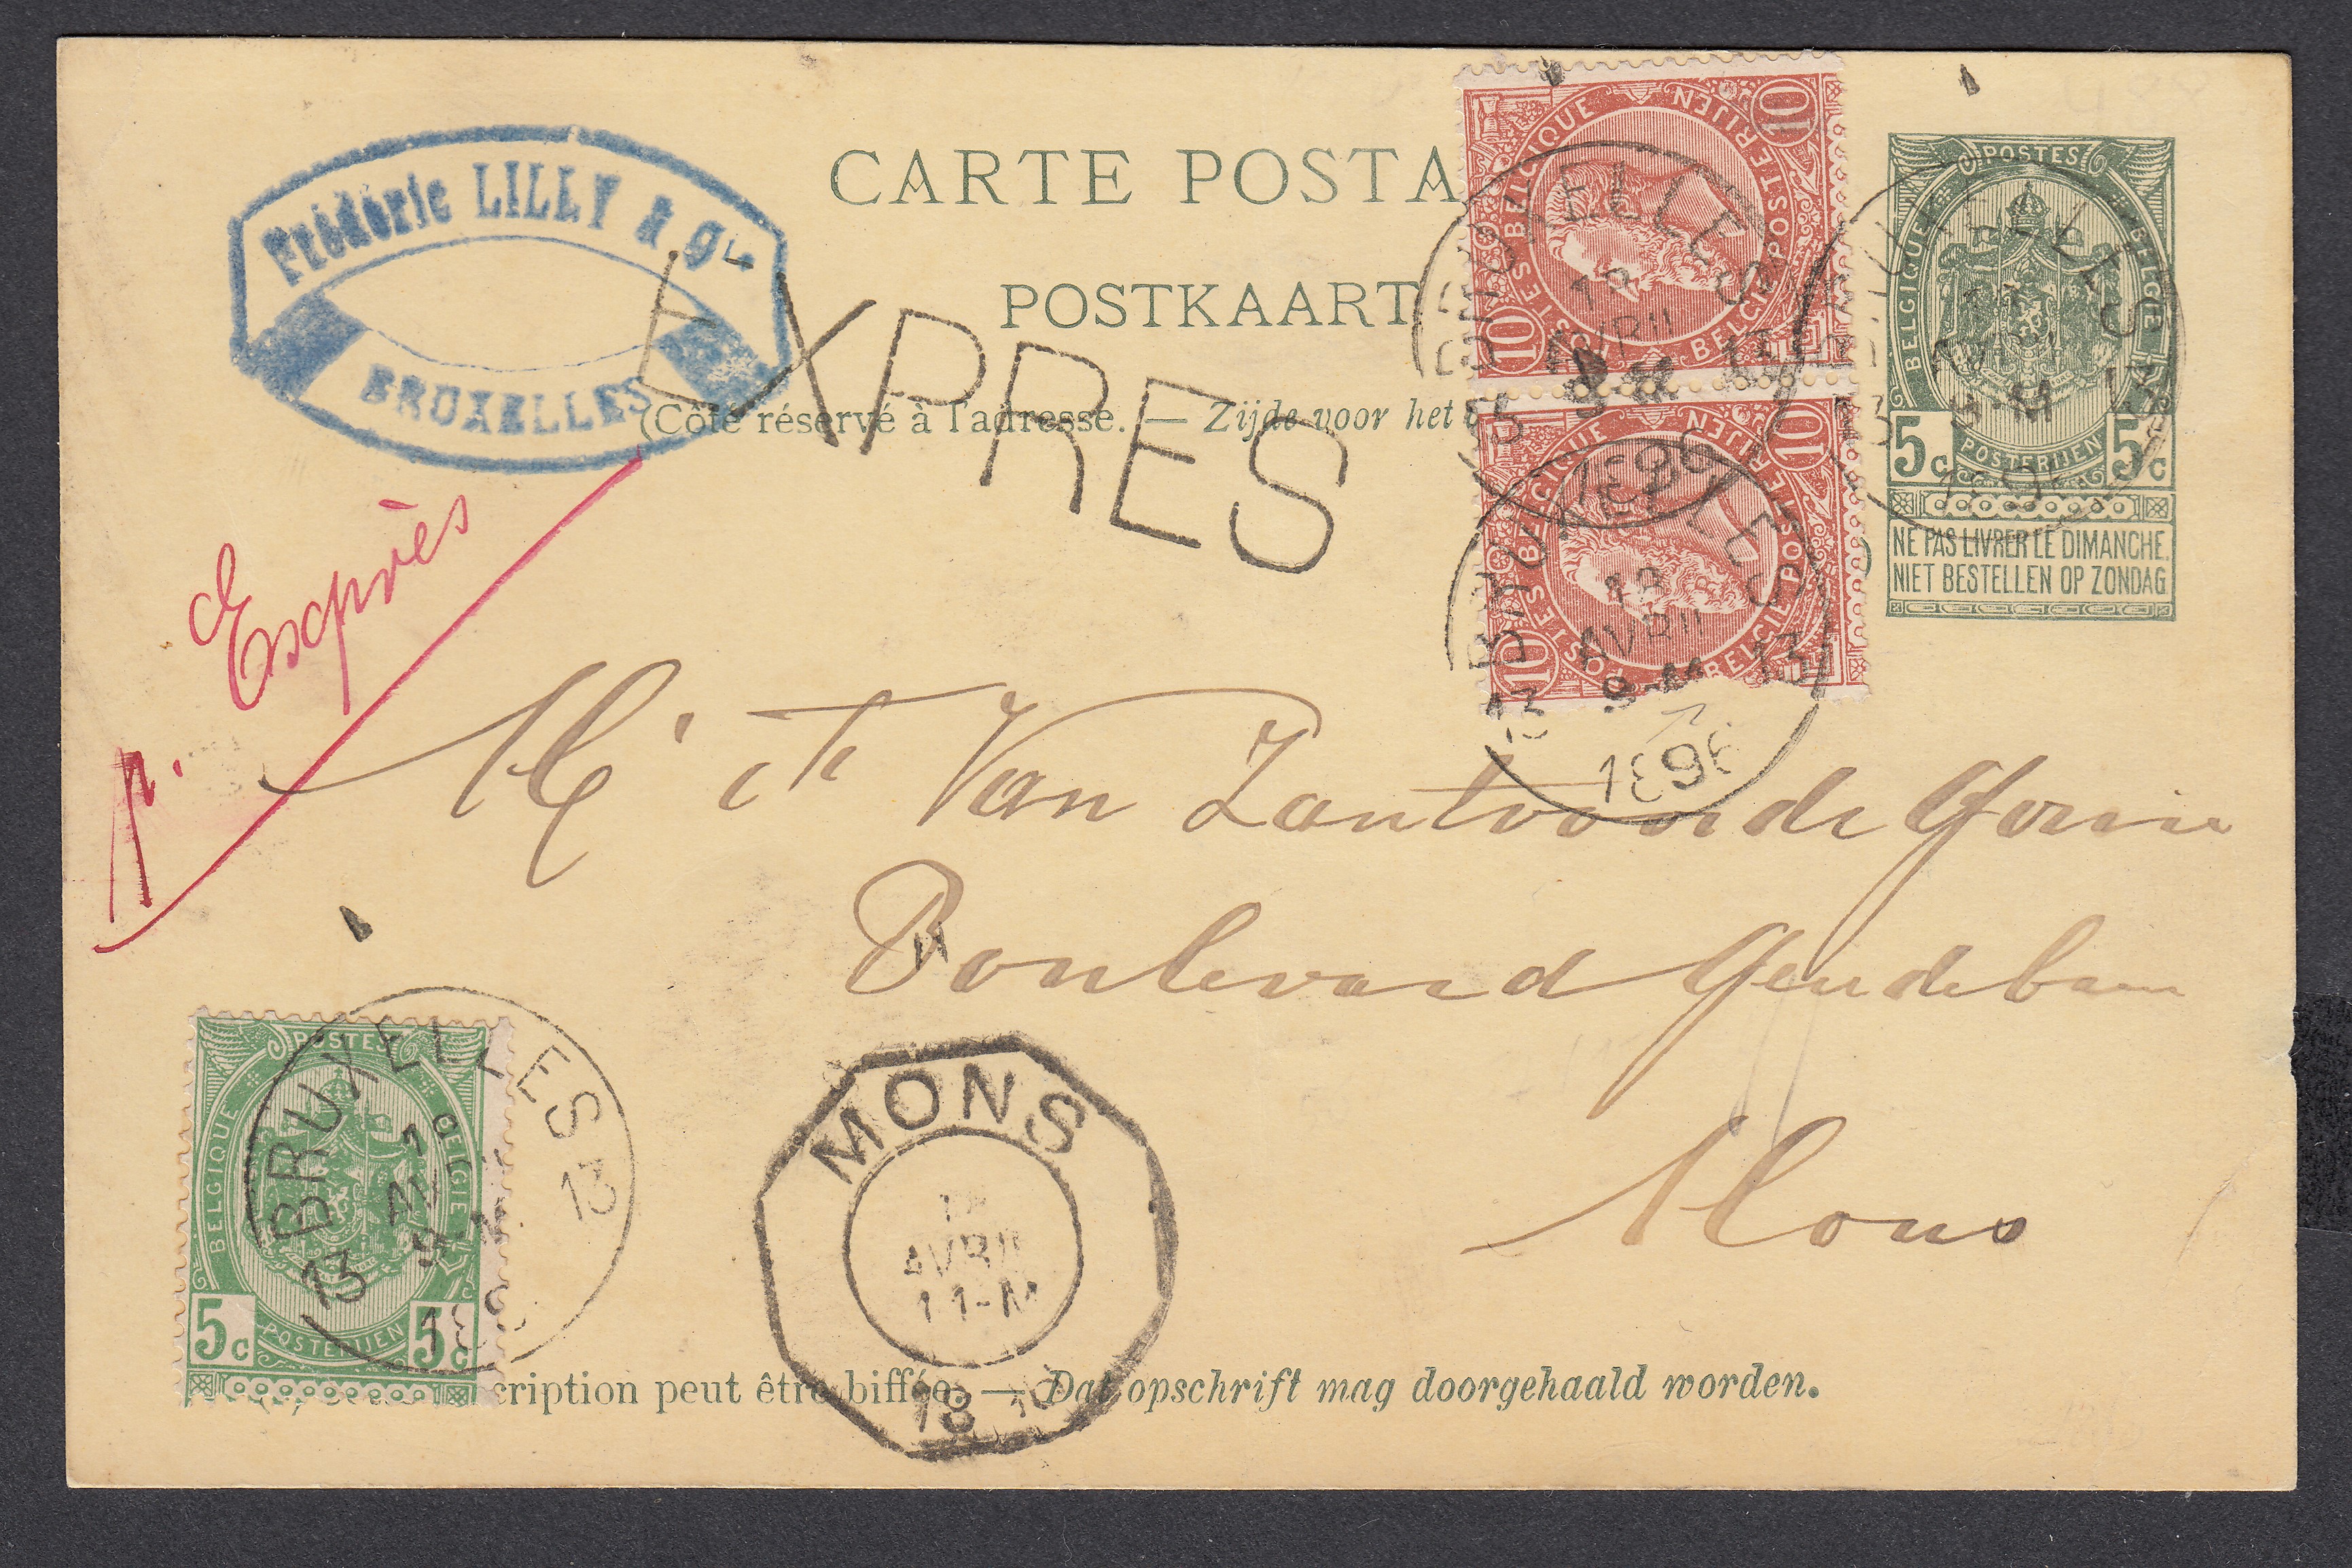 Frédéric LILLY & Cie
BRUXELLES
CARTE POSTA
POSTKAART
(Côté réservé à l'adresse. — Zijde voor het
EXPRES
p. Exprès
BELGIQUE POSTERIJEN
10 10
POSTES BELGIQUE POSTERIJEN
10 10
POSTES BELGIE
BRUXELLES
AVRIL
9-M
BRUXELLES
13 AVRIL 13
9-M
189
POSTES
BELGIQUE BELGIE
5c POSTERIJEN 5c
NE PAS LIVRER LE DIMANCHE.
NIET BESTELLEN OP ZONDAG
BRUXELLES
Van Zantvoorde
Boulevard Gendebien
Mons
POSTES
BELGIQUE BELGIE
5c POSTERIJEN 5c
BRUXELLES
13 13
MONS
AVRIL
11-M
18
cription peut être biffée. — Dat opschrift mag doorgehaald worden.